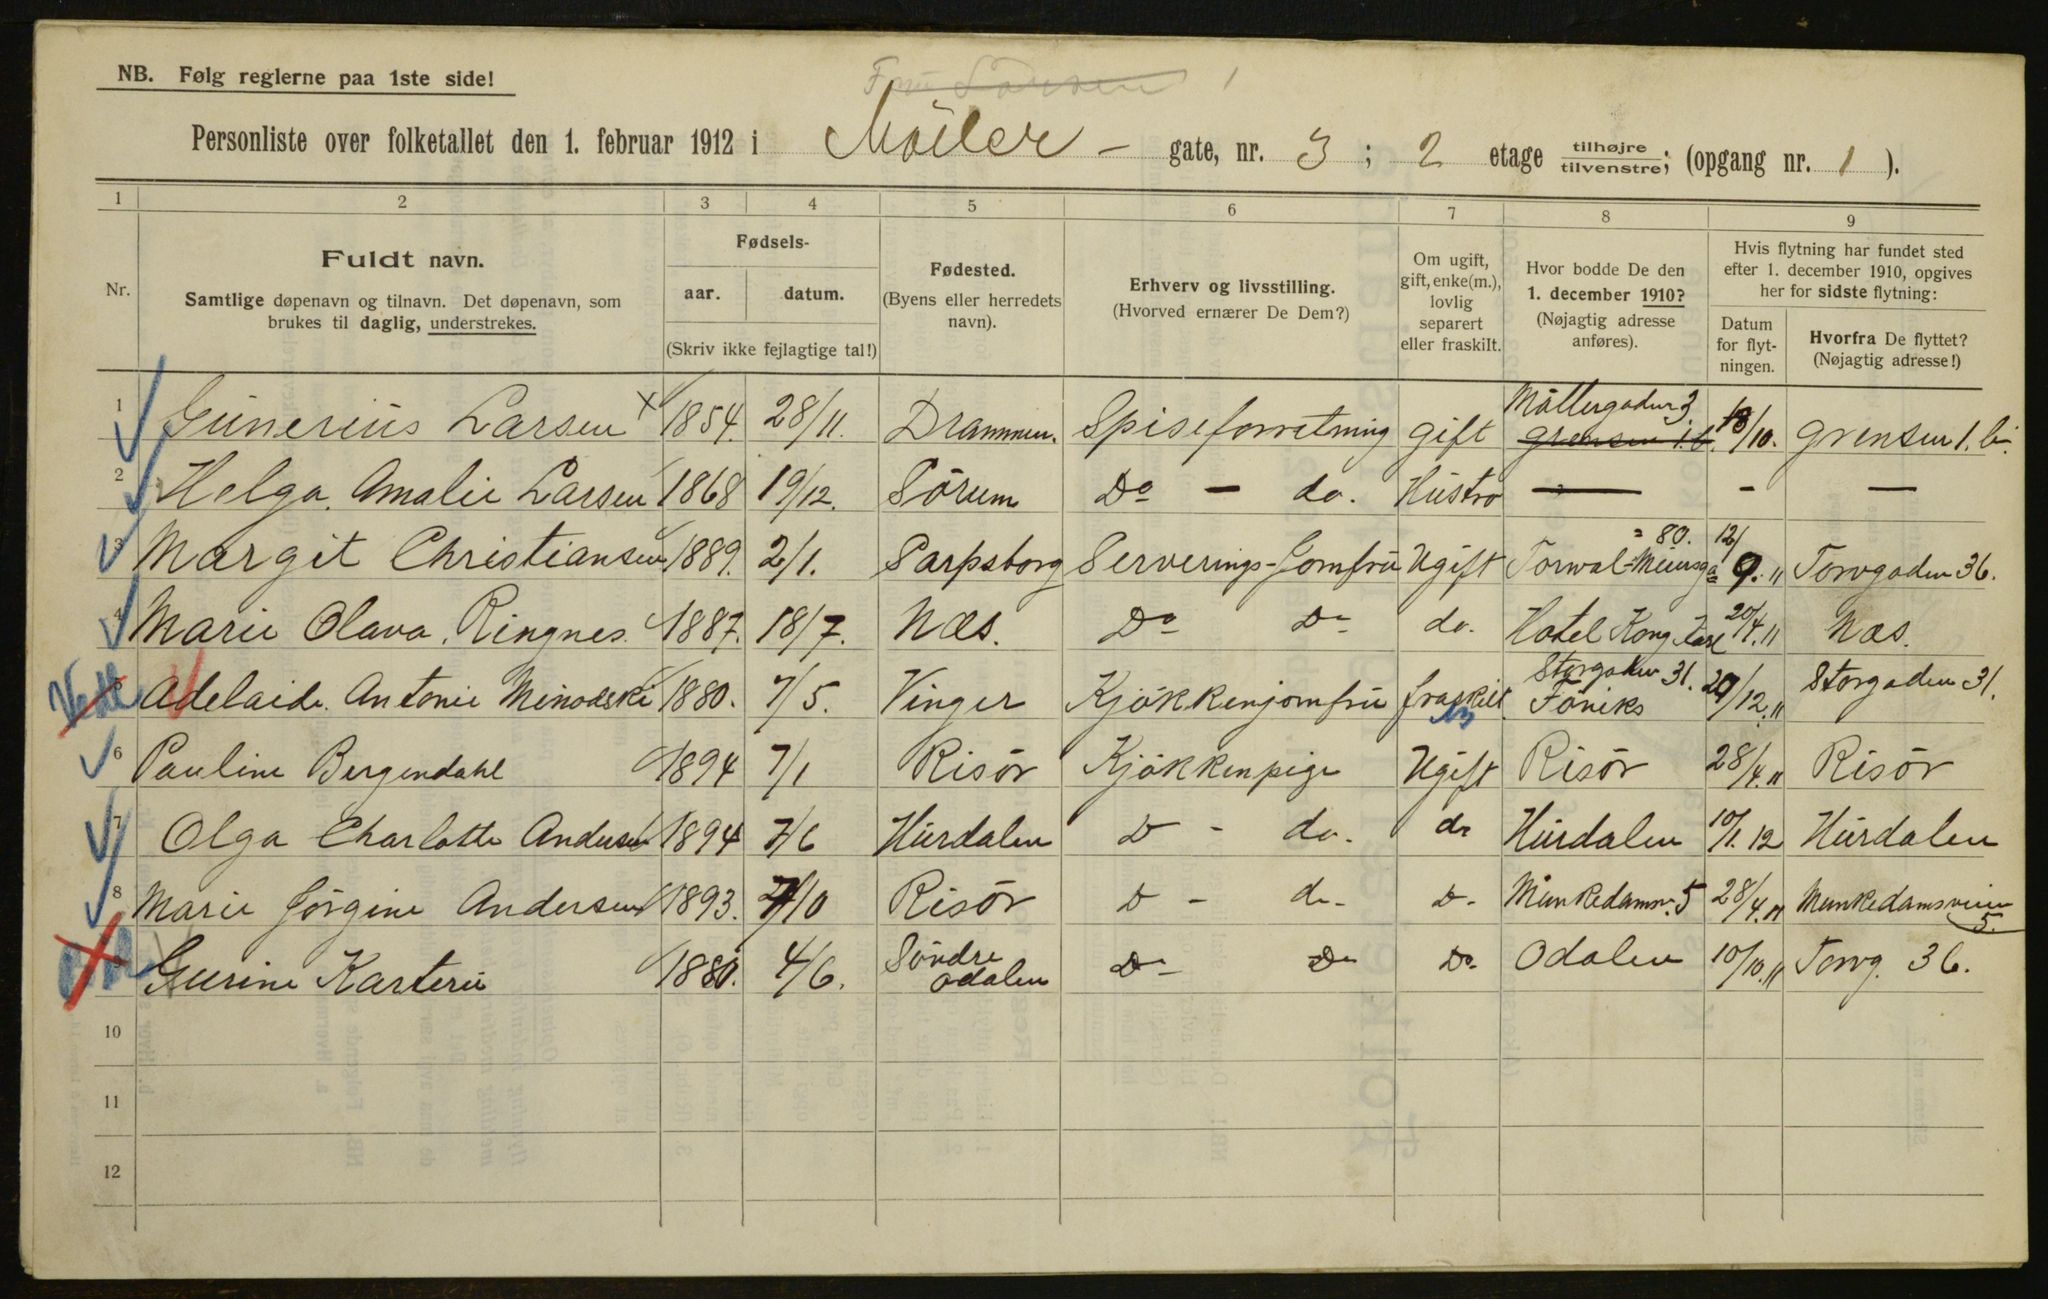 NB. Følg reglerne paa 1ste side!
Fru Larsen 1
Personliste over folketallet den 1. februar 1912 i Möller - gate, nr. 3 ; 2 etage tilhøjre tilvenstre; (opgang nr. 1 ).
1 2 3 4 5 6 7 8 9
Nr.
Fuldt navn.
Samtlige døpenavn og tilnavn. Det døpenavn, som
brukes til daglig, understrekes.
Fødsels-
aar. datum.
(Skriv ikke fejlagtige tal!)
Fødested.
(Byens eller herredets
navn).
Erhverv og livsstilling.
(Hvorved ernærer De Dem?)
Om ugift,
gift, enke(m.),
lovlig
separert
eller fraskilt.
Hvor bodde De den
1. december 1910?
(Nøjagtig adresse
anføres).
Hvis flytning har fundet sted
efter 1. december 1910, opgives
her for sidste flytning:
Datum
for flyt-
ningen.
Hvorfra De flyttet?
(Nøjagtig adresse!)
1 Gunerius Larsen x 1854. 28/11. Drammen. Spiseforretning gift Möllergaden 3 grensen 1.b. 18/10. grensen 1.b.
2 Helga. Amalie Larsen 1868 19/12. Sörum Do - do. Hustro — - —
3 Margit Christiansen 1889. 2/1. Sarpsborg Serverings-Jomfru Ugift Torwal-Meiersga 80. 12/9. 11 Torvgaden 36.
4 Marie Olava. Ringnes. 1887. 18/7. Næs. Do Do do. Hotel Kong Karl 20/4. 11 Næs.
Adelaide. Antonie Minodski 1880. 7/5. Vinger Kjökkenjomfru fraskilt. Storgaden 31. Föniks 20/12. 11 Storgaden 31.
6 Pauline Bergendahl 1894 7/1 Risör Kjökkenpige Ugift Risör 28/4. 11 Risör
7 Olga Charlotte Andersen 1894 7/6 Hurdalen D - do. do Hurdalen 10/1. 12 Hurdalen
8 Marie Jörgine Andersen 1893. 7/10 Risör D - do - D. Munkedamsv. 5 28/4. 11 Munkedamsveien 5.
Gurine Karterü 1880. 4/6. Söndre odalen Do Do Do Odalen 10/10. 11 Torvg. 36.
10
11
12